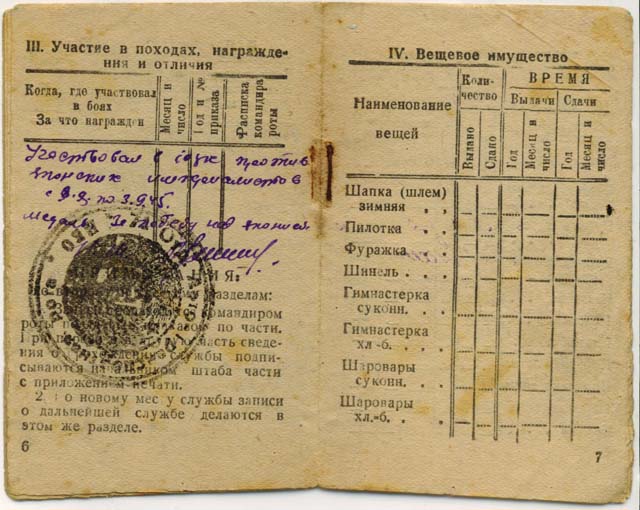 III. Участие в походах, награжде-
ния и отличия
Когда, где участвовал
в боях
За что награжден
Месяц и
число
Год и №
приказа
Расписка
командира
роты
Участвовал в боях против
японских империалистов
с 9.8 по 3.9.45.
медаль За победу над Японией
НИЯ:
разделам:
командиром
роты по части.
При часть сведе-
ния о службы подпи-
сываются начальником штаба части
с приложением печати.
2. По новому мес у службы записи
о дальнейшей службе делаются в
этом же разделе.
6
IV. Вещевое имущество
Наименование
вещей
Коли-
чество
ВРЕМЯ
Выдачи
Сдачи
Выдано
Сдано
Год
Месяц и
число
Год
Месяц и
число
Шапка (шлем)
зимняя . .
Пилотка . .
Фуражка . .
Шинель . .
Гимнастерка
суконн. . .
Гимнастерка
хл.-б. . .
Шаровары
суконн. . .
Шаровары
хл.-б. . .
7